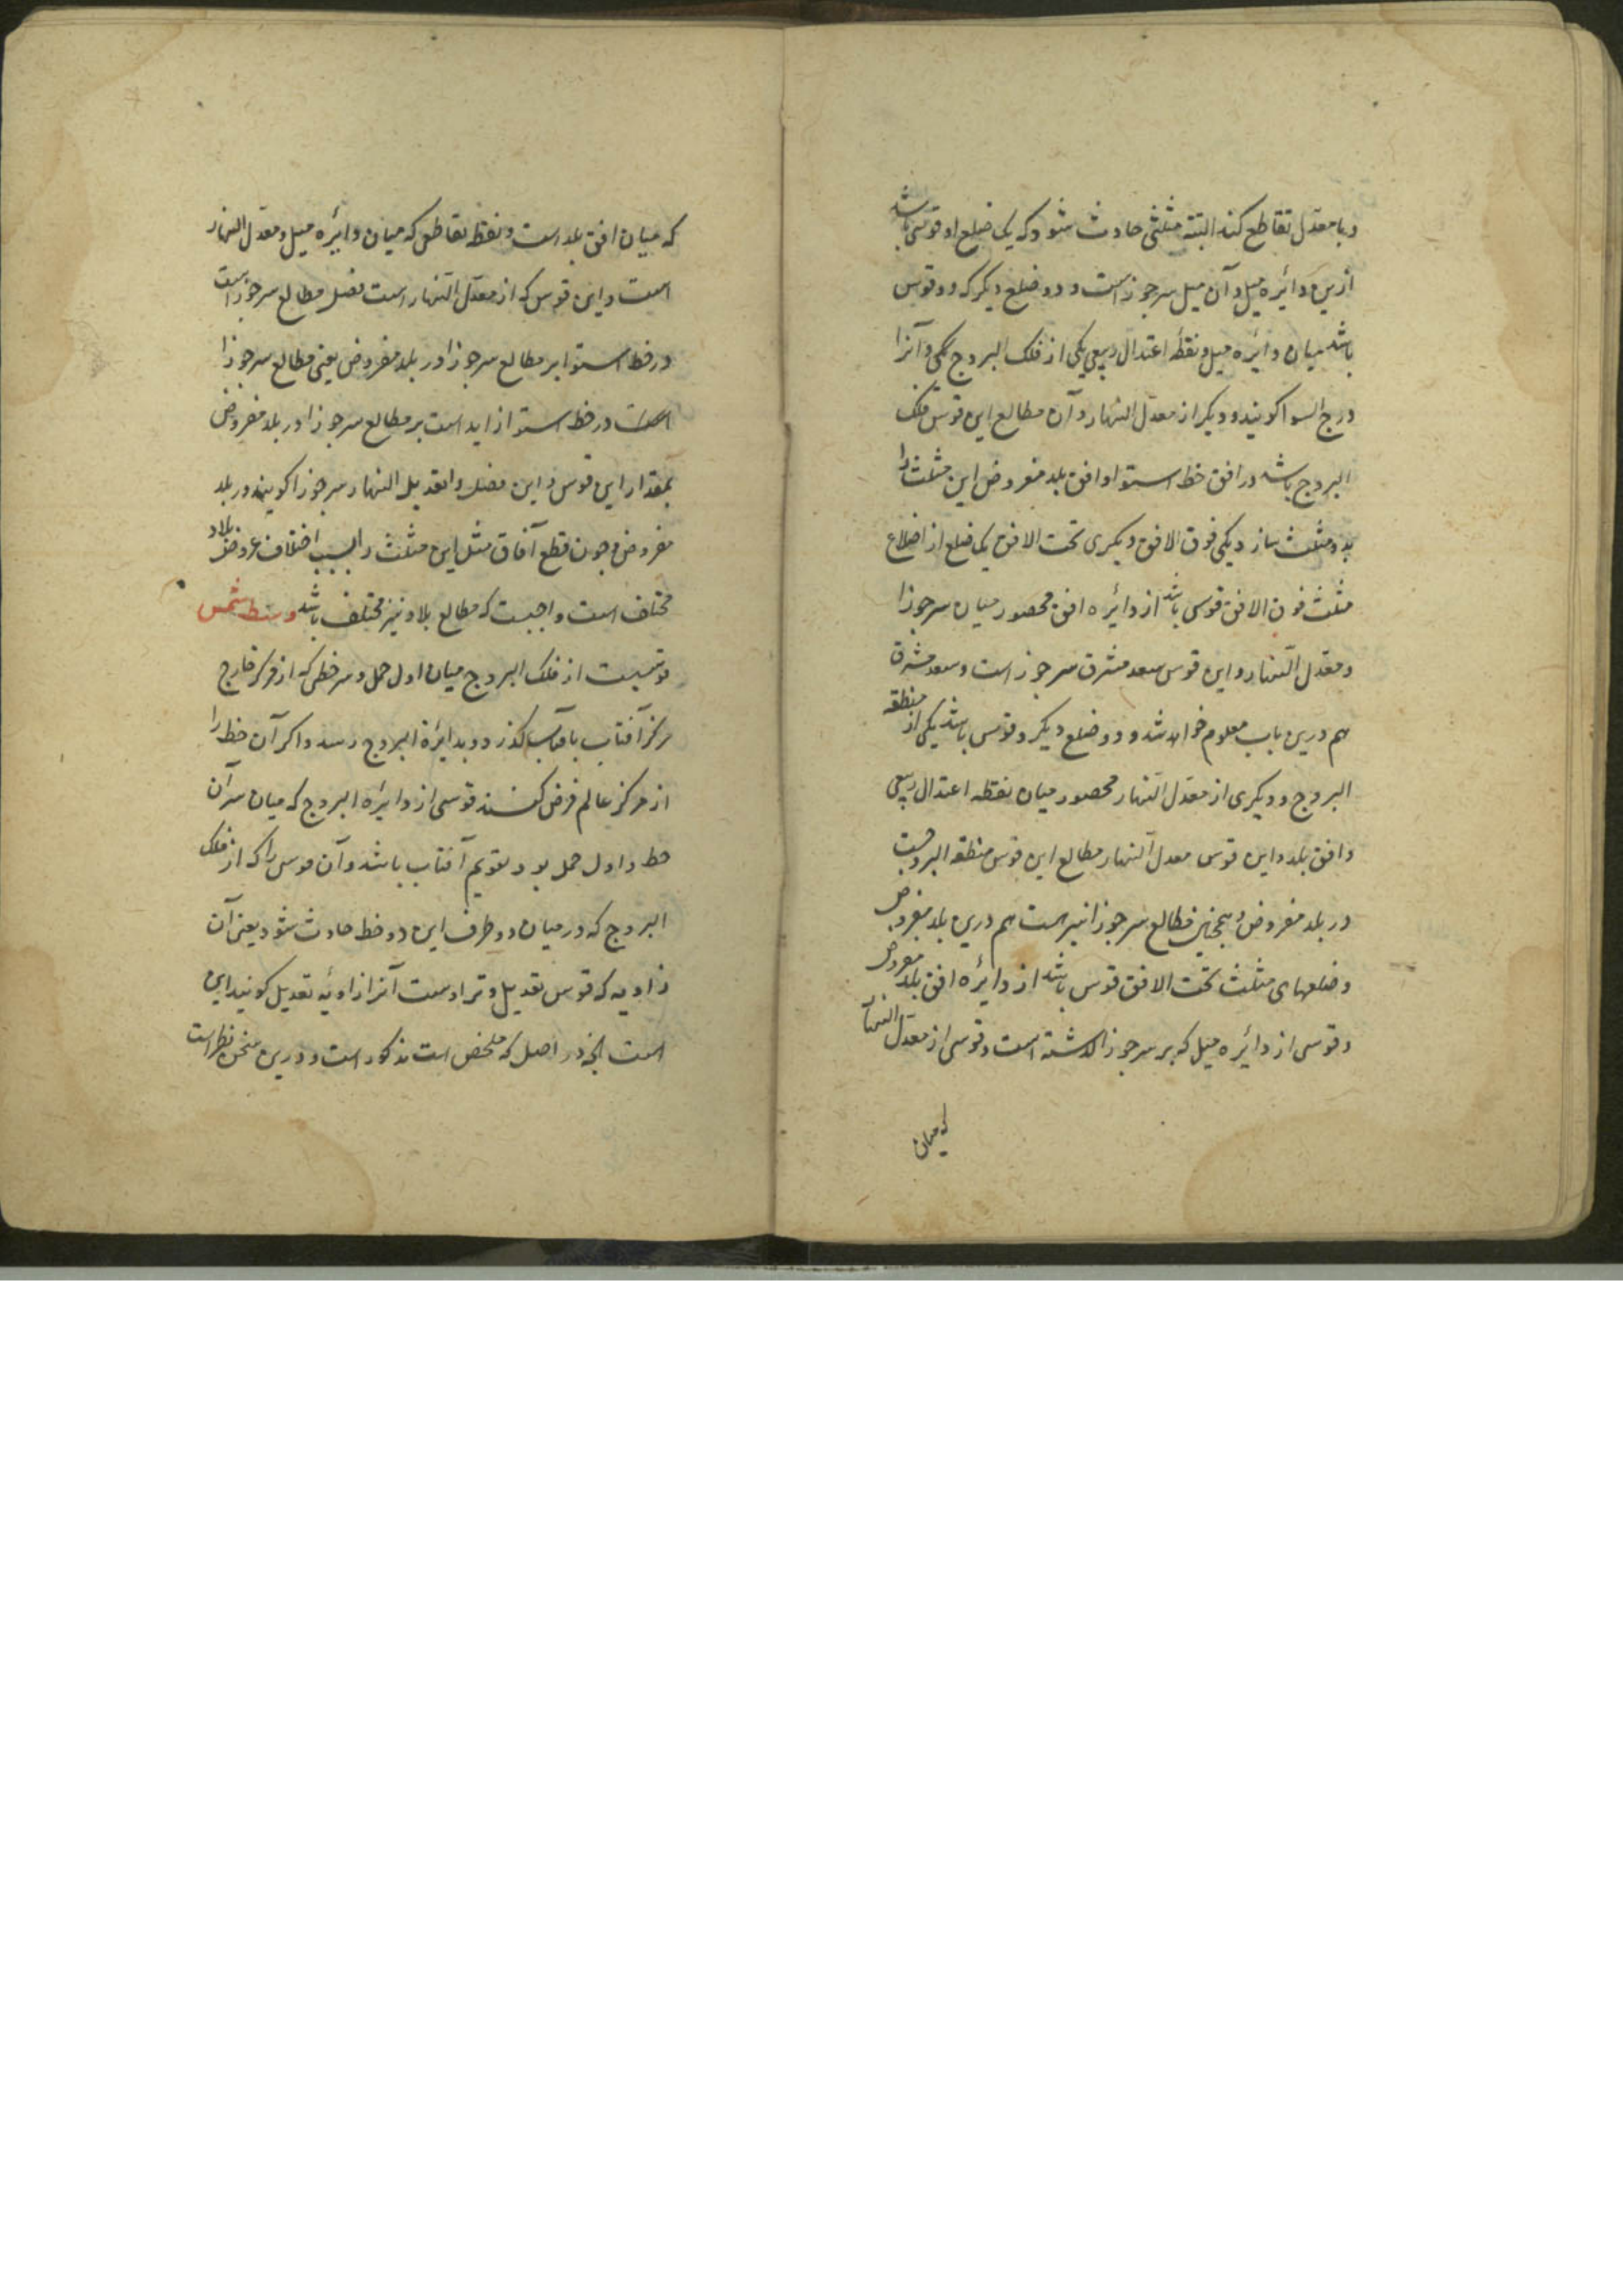 و با معدل تقاطع کند البته مثلثی حادث شود که یک ضلع او قوسی باشد
ازین دائره میل و آن میل سر جوزاست و دو ضلع دیگر که دو قوس
باشد میان دائره میل و نقطه اعتدال ربیعی یکی از فلک البروج و آنرا
درج السوا کویند و دیکر از معدل النهار و آن مطالع این قوس فلک
البروج باشد در افق خط استوا و افق بلد مفروض این مثلث را
بدو مثلث سازد یکی فوق الافق و یکری تحت الافق یک ضلع از اضلاع
مثلث فوق الافق قوسی باشد از دائره افق محصور میان سر جوزا
و معدل النهار و این قوس سعه مشرق سر جوزاست و سعه مشرق
هم درین باب معلوم خواهد شد و دو ضلع دیکر دو قوس باشد یکی از منطقه
البروج و دیکری از معدل النهار محصور میان نقطه اعتدال ربیعی
و افق بلد و این قوس معدل النهار مطالع این قوس منطقه البروجست
در بلد مفروض و همچنین مطالع سر جوزا نیز هست هم درین بلد مفروض
و ضلعهای مثلث تحت الافق قوس باشد از دائره افق بلد مفروض
و قوسی از دائره میل که بر سر جوزا کذشته است و قوسی از معدل النهار
که میان
که میان افق بلد است و نقطه تقاطع که میان دائره میل و معدل النهار
است و این قوس که از معدل النهار است فضل مطالع سر جوزاست
در خط استوا بر مطالع سر جوزا در بلد مفروض یعنی مطالع سر جوزا
در خط استوا زاید است بر مطالع سر جوزا در بلد مفروض
بمقدار این قوس و این فضل را تعدیل النهار سر جوزا کویند در بلد
مفروض و چون قطع آفاق مثل این مثلث را بسبب اختلاف عروض بلاد
مختلف است واجبست که مطالع بلاد نیز مختلف باشد وسط شمس
قوسیست از فلک البروج میان اول حمل و سر خطی که از مرکز خارج
مرکز آفتاب بآفتاب کذرد و بدائره البروج رسد و اکر آن خط را
از مرکز عالم فرض کنند قوسی از دائره البروج که میان سر آن
خط و اول حمل بود تقویم آفتاب باشد و آن قوسی را که از فلک
البروج که در میان دو طرف این دو خط حادث شود یعنی آن
زاویه که قوس تعدیل وتر اوست آنرا زاویه تعدیل کویند این
است آنچه در اصل که ملخص است مذکور است و درین سخن نظر است